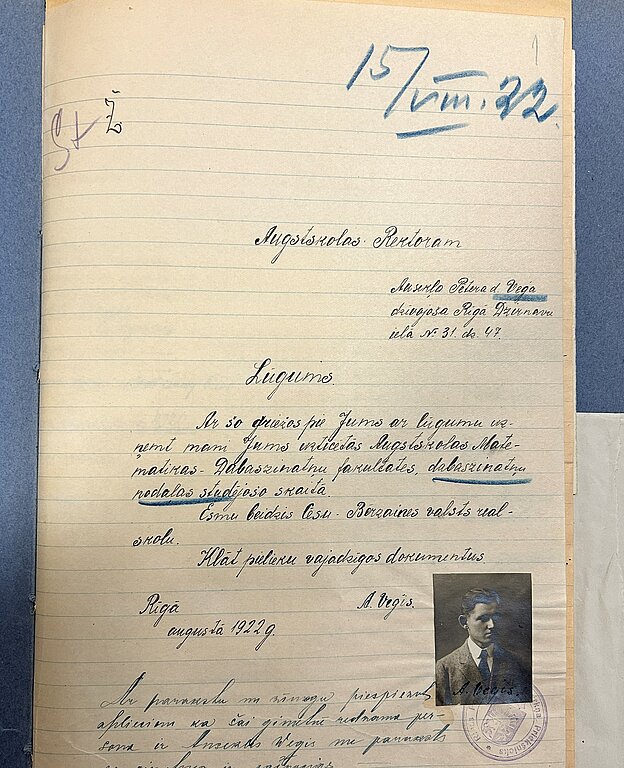 1
15/VIII. 22.
Ž
Augstskolas Rektoram
Ansekļa Pētera d. Vega
dzīvojoša Rīgā Dzirnavu
ielā № 31. dz. 47.
Lūgums
Ar šo griežos pie Jums ar lūgumu uz-
ņemt mani Jums uzticētās Augstskolas Mate-
matikas-Dabaszinatņu fakultātes, dabaszinatņu
nodaļas studējošo skaitā.
Esmu beidzis Cēsu-Bērzaines valsts real-
skolu.
Klāt pielieku vajadzīgos dokumentus
Rīgā
A. Veģis.
augustā 1922 g.
A. Veģis.
Ar parakstu un zīmogu piespiežot
apliecinu ka šai ģimetnē redzama per-
sona ir Anseklis Vegis un paraksts
Priekšnieks